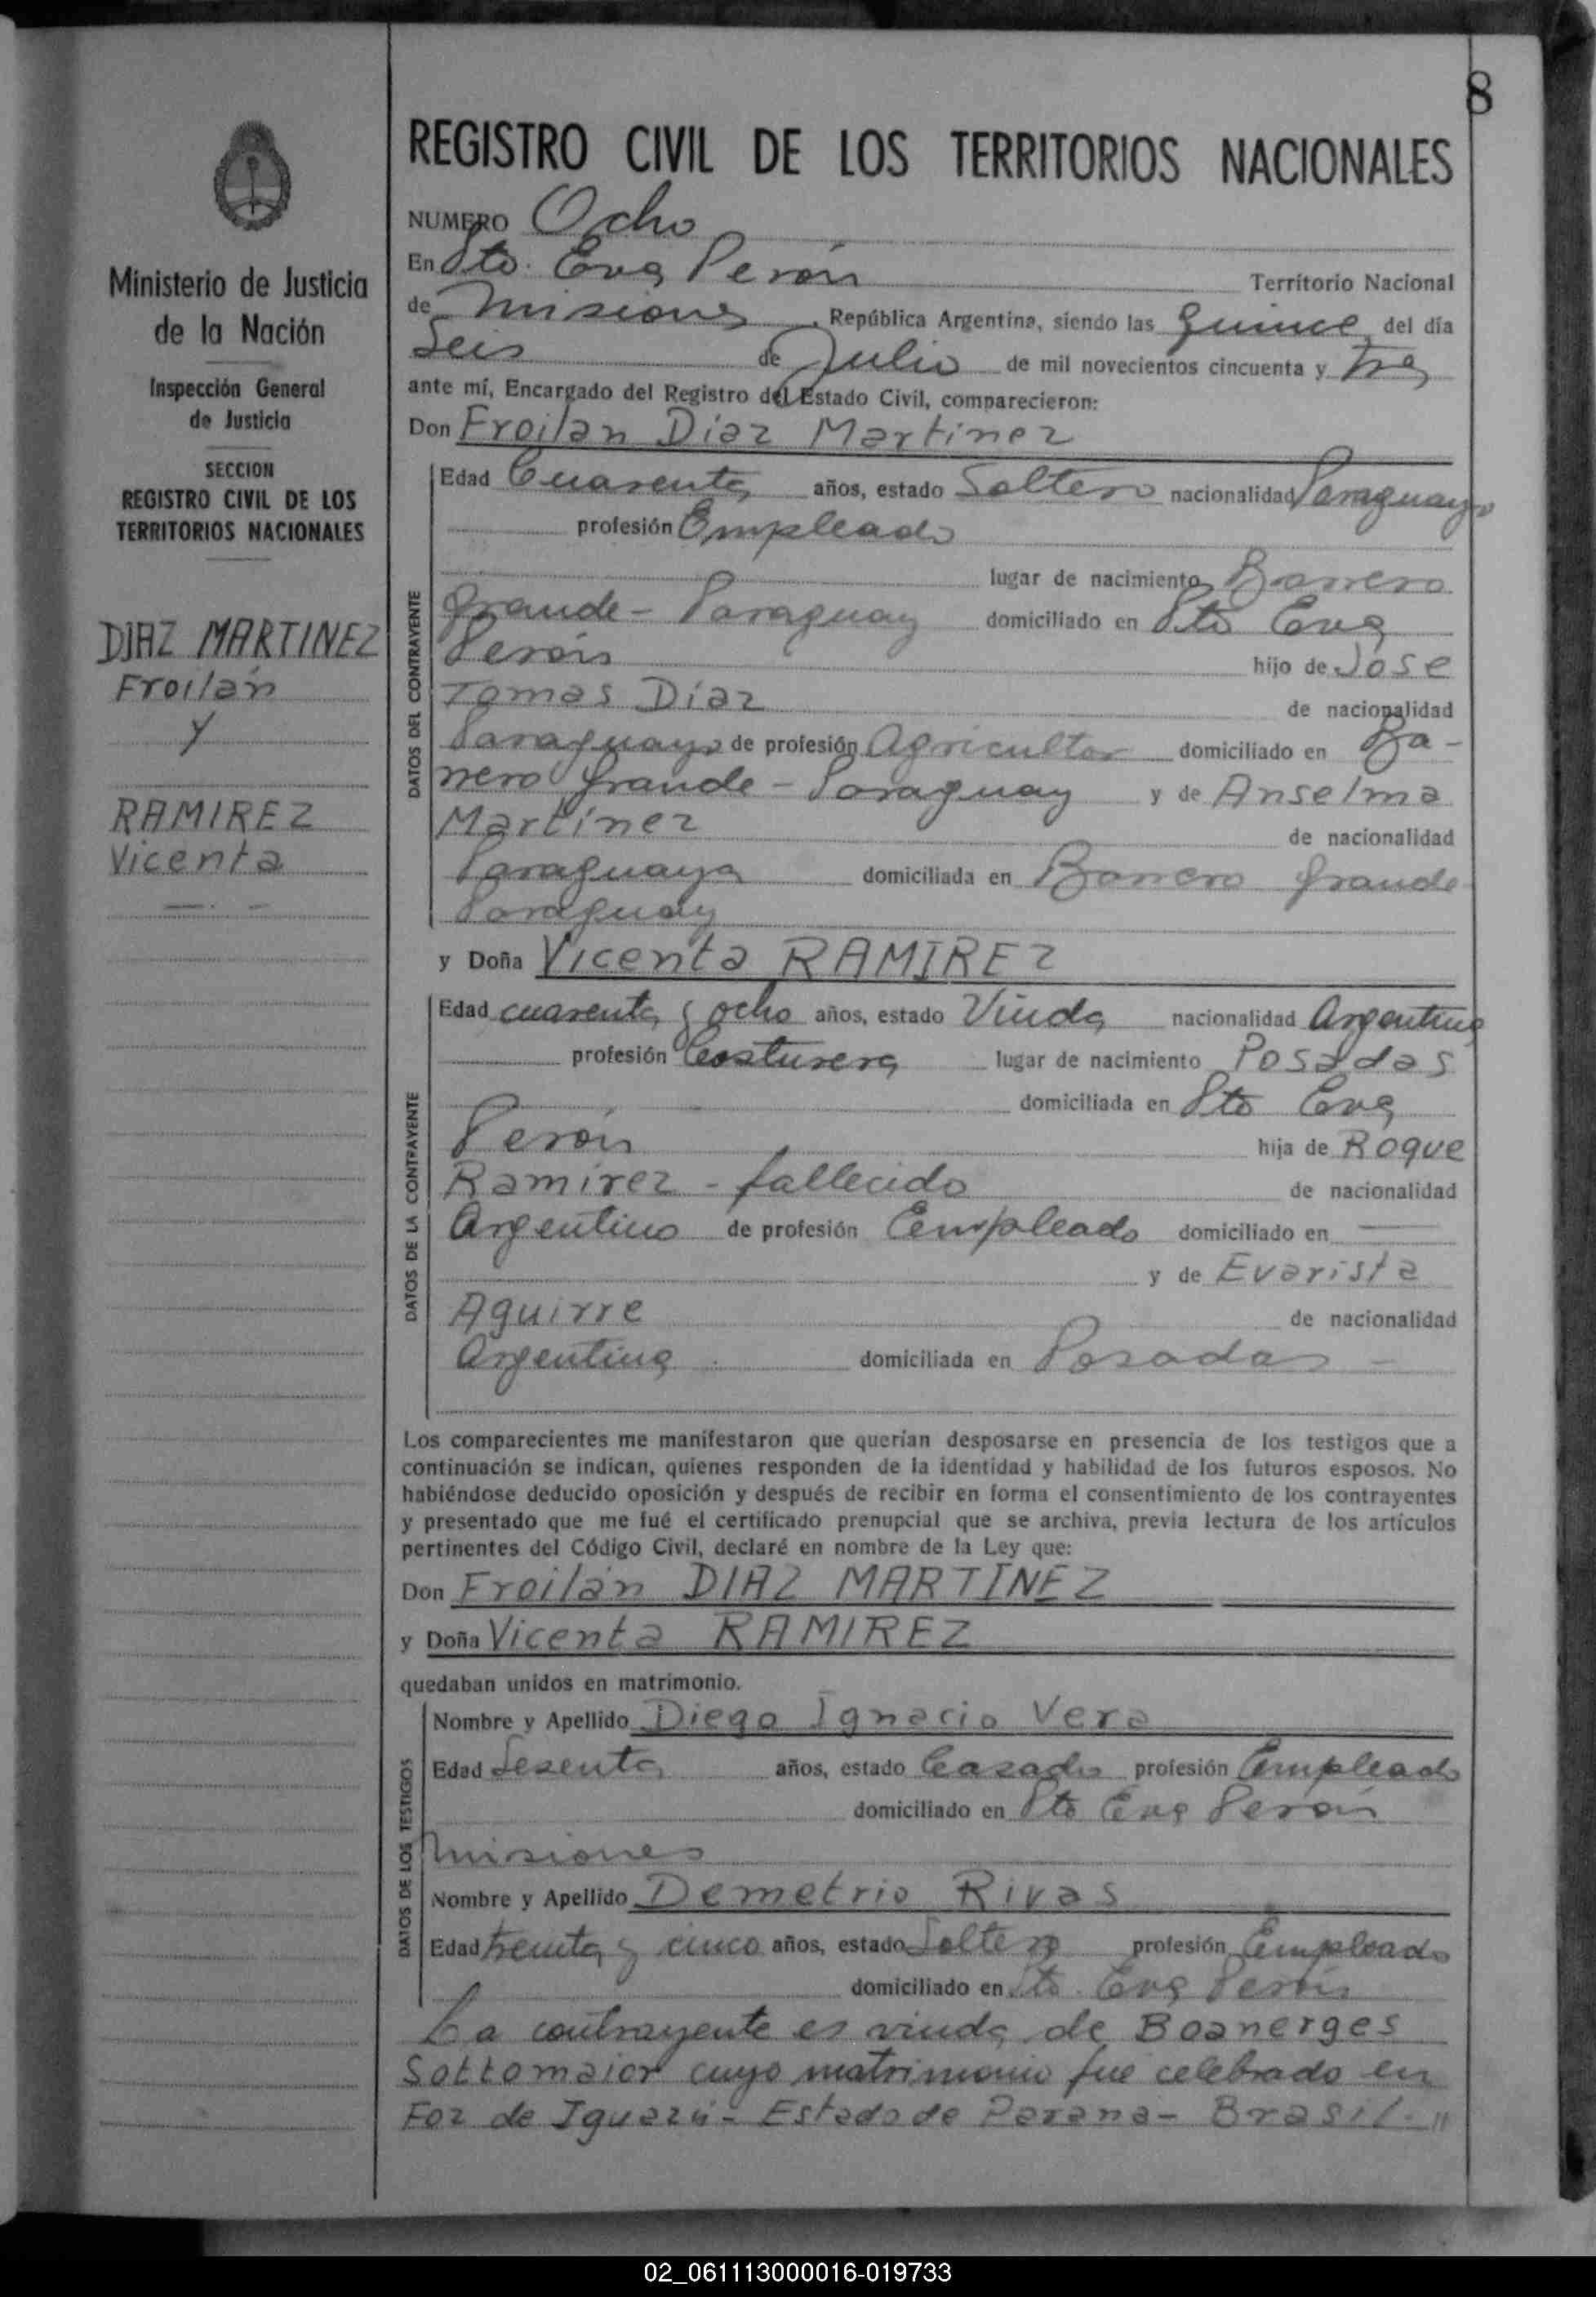 8
REGISTRO CIVIL DE LOS TERRITORIOS NACIONALES
Ministerio de Justicia
de la Nación
Inspección General
de Justicia
SECCION
REGISTRO CIVIL DE LOS
TERRITORIOS NACIONALES
DIAZ MARTINEZ
Froilán
y
RAMIREZ
Vicenta
NUMERO Ocho
En Pto. Eva Perón Territorio Nacional
de Misiones, República Argentina, siendo las quince del día
Seis de Julio de mil novecientos cincuenta y tres
ante mí, Encargado del Registro del Estado Civil, comparecieron:
Don Froilan Díaz Martinez
DATOS DEL CONTRAYENTE
Edad Cuarenta años, estado Soltero nacionalidad Paraguayo
profesión Empleado
lugar de nacimiento Barrero
Grande - Paraguay domiciliado en Pto Eva
Perón hijo de José
Tomas Díaz de nacionalidad
Paraguayo de profesión Agricultor domiciliado en Ba-
rrero Grande - Paraguay y de Anselma
Martínez de nacionalidad
Paraguaya domiciliada en Barrero Grande
Paraguay
y Doña Vicenta RAMIREZ
DATOS DE LA CONTRAYENTE
Edad cuarenta y ocho años, estado Viuda nacionalidad Argentina
profesión Costurera lugar de nacimiento Posadas
domiciliada en Pto Eva
Perón hija de Roque
Ramírez - fallecido de nacionalidad
Argentino de profesión Empleado domiciliado en —
y de Evarista
Aguirre de nacionalidad
Argentina domiciliada en Posadas -
Los comparecientes me manifestaron que querían desposarse en presencia de los testigos que a
continuación se indican, quienes responden de la identidad y habilidad de los futuros esposos. No
habiéndose deducido oposición y después de recibir en forma el consentimiento de los contrayentes
y presentado que me fué el certificado prenupcial que se archiva, previa lectura de los artículos
pertinentes del Código Civil, declaré en nombre de la Ley que:
Don Froilán DIAZ MARTINEZ
y Doña Vicenta RAMIREZ
quedaban unidos en matrimonio.
DATOS DE LOS TESTIGOS
Nombre y Apellido Diego Ignacio Vera
Edad Sesenta años, estado Casado profesión Empleado
domiciliado en Pto Eva Perón
Misiones
Nombre y Apellido Demetrio Rivas
Edad treinta y cinco años, estado Soltero profesión Empleado
domiciliado en Pto. Eva Perón
La contrayente es viuda de Boanerges
Sottomaior cuyo matrimonio fue celebrado en
Foz de Iguazú - Estado de Parana - Brasil. "
02_061113000016-019733